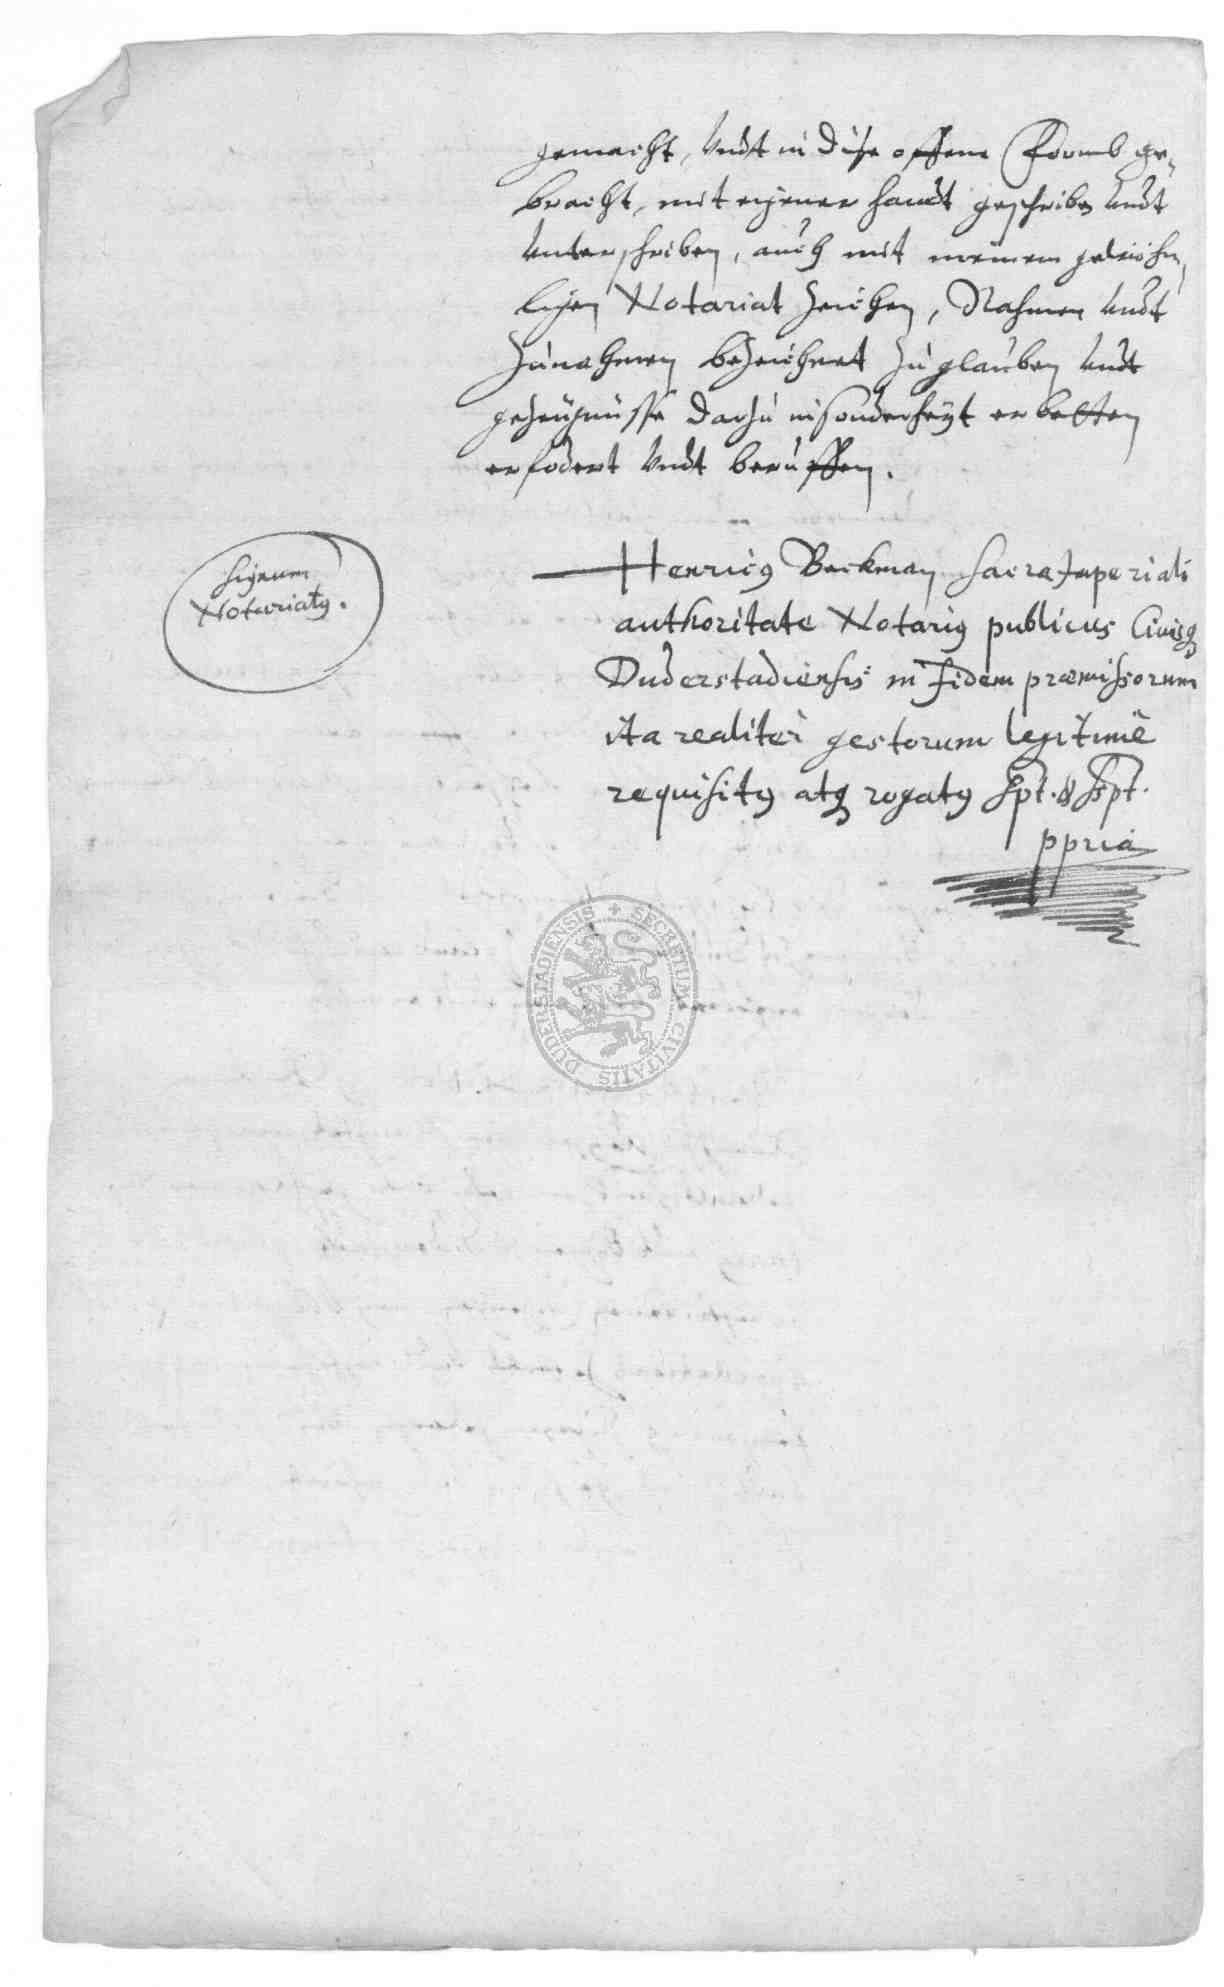 gemacht, Vndt in diese offene Formb ge-
bracht, mit eigener handt geschriben Vndt
Vnterschriben, auch mit meinem gewöhn-
lichen Notariat Zeichen, Nahmen Vndt
Zunahmen bezeichnet Zu glauben Vndt
gezeügnüsse darzu insonderheyt erbetten
erfodert Vndt beruffen.
Signum
Notariatus.
Henricus Beckman Sacra Imperiali
authoritate Notarius publicus Civisq
Duderstadiensis in fidem præmissorum
ita realiter gestorum legitimè
requisitus atq rogatus spt. & sspt.
ppria
SECRETUM CIVITATIS DUDERSTADIENSIS